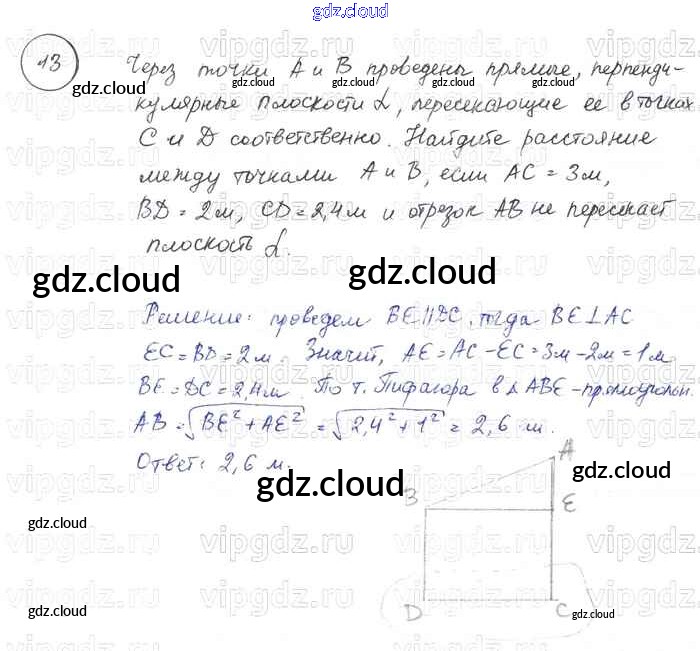 gdz.cloud
13
Через точки А и В проведены прямые, перпенди-
кулярные плоскости α, пересекающие ее в точках
С и D соответственно. Найдите расстояние
между точками А и В, если AC = 3м,
BD = 2м, CD = 2,4м и отрезок AB не пересекает
плоскость α.
gdz.cloud
gdz.cloud
gdz.cloud
gdz.cloud
Решение: проведем BE || DC, тогда BE ⊥ AC
EC = BD = 2м. Значит, AE = AC - EC = 3м - 2м = 1м
BE = DC = 2,4м. По т. Пифагора в Δ ABE - прямоугольн.
AB = √BE² + AE² = √2,4² + 1² = 2,6 м.
Ответ: 2,6 м.
A
gdz.cloud
gdz.cloud
gdz.cloud
B
E
gdz.cloud
D
C
gdz.cloud
gdz.cloud
vipgdz.ru